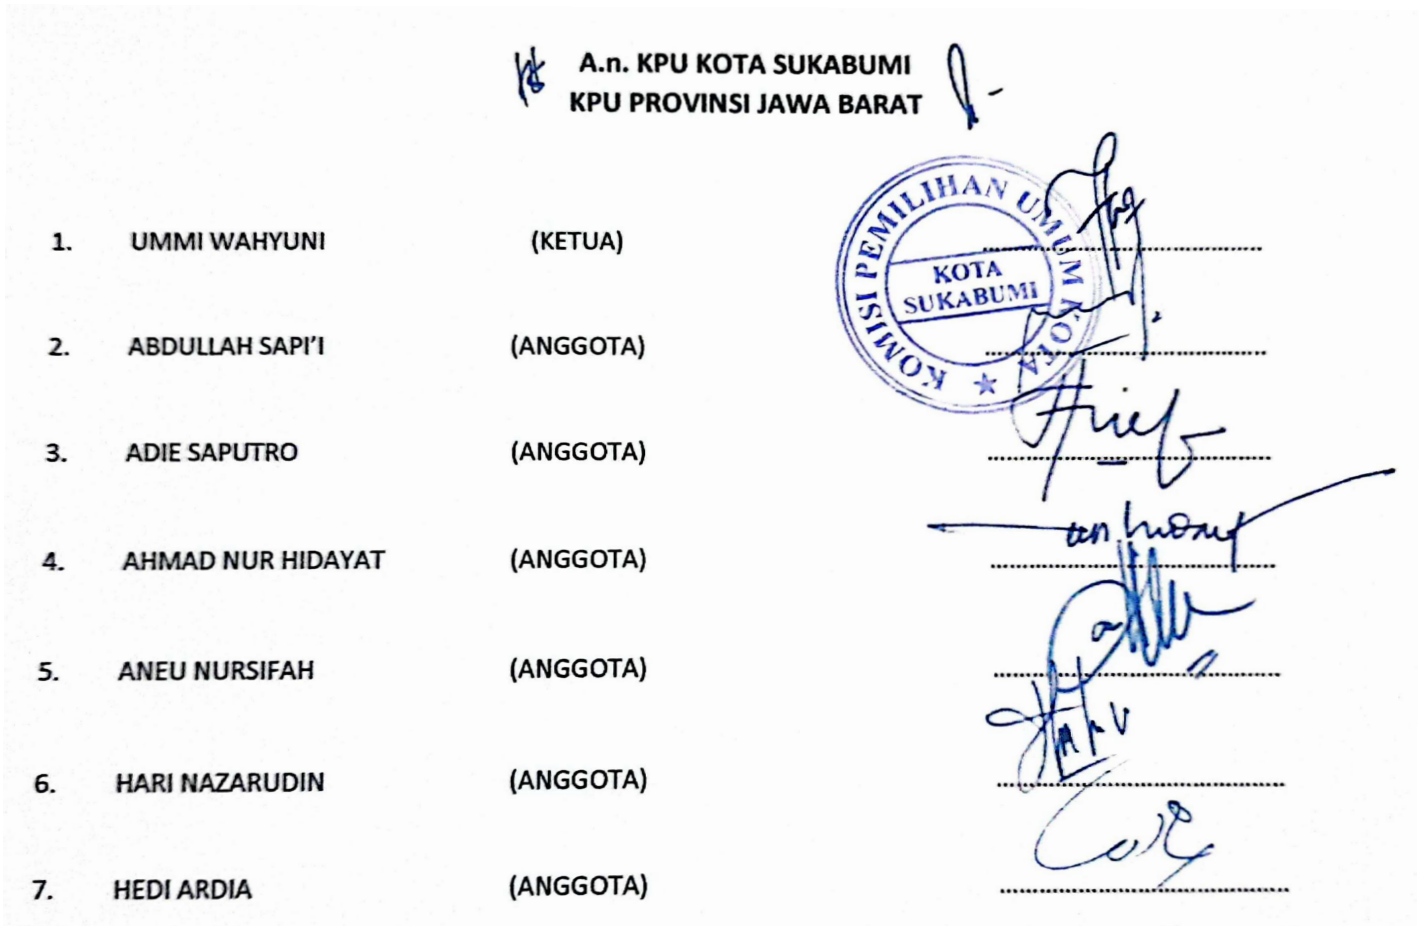 A.n. KPU KOTA SUKABUMI
KPU PROVINSI JAWA BARAT
KOMISI PEMILIHAN UMUM KOTA
KOTA
SUKABUMI
1. UMMI WAHYUNI (KETUA) ........................................
2. ABDULLAH SAPI'I (ANGGOTA) ........................................
3. ADIE SAPUTRO (ANGGOTA) ........................................
4. AHMAD NUR HIDAYAT (ANGGOTA) ........................................
5. ANEU NURSIFAH (ANGGOTA) ........................................
6. HARI NAZARUDIN (ANGGOTA) ........................................
7. HEDI ARDIA (ANGGOTA) ........................................